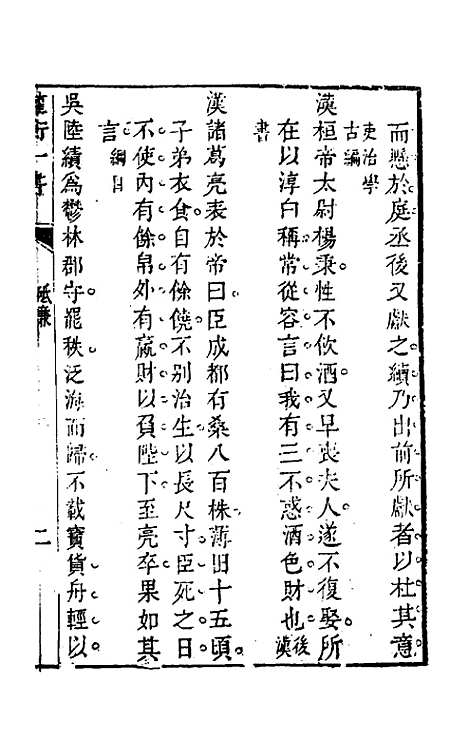 而懸於庭丞後又獻之續乃出前所獻者以杜其意
吏治學
古編
漢桓帝太尉楊秉性不飲酒又早喪夫人遂不復娶所
在以淳白稱常從容言曰我有三不惑酒色財也後漢
書
漢諸葛亮表於帝曰臣成都有桑八百株薄田十五頃
子弟衣食自有餘饒不別治生以長尺寸臣死之日
不使內有餘帛外有贏財以負陛下至亮卒果如其
言綱目
吳陸績爲鬱林郡守罷秩泛海而歸不載寶貨舟輕以
書
砥廉
二